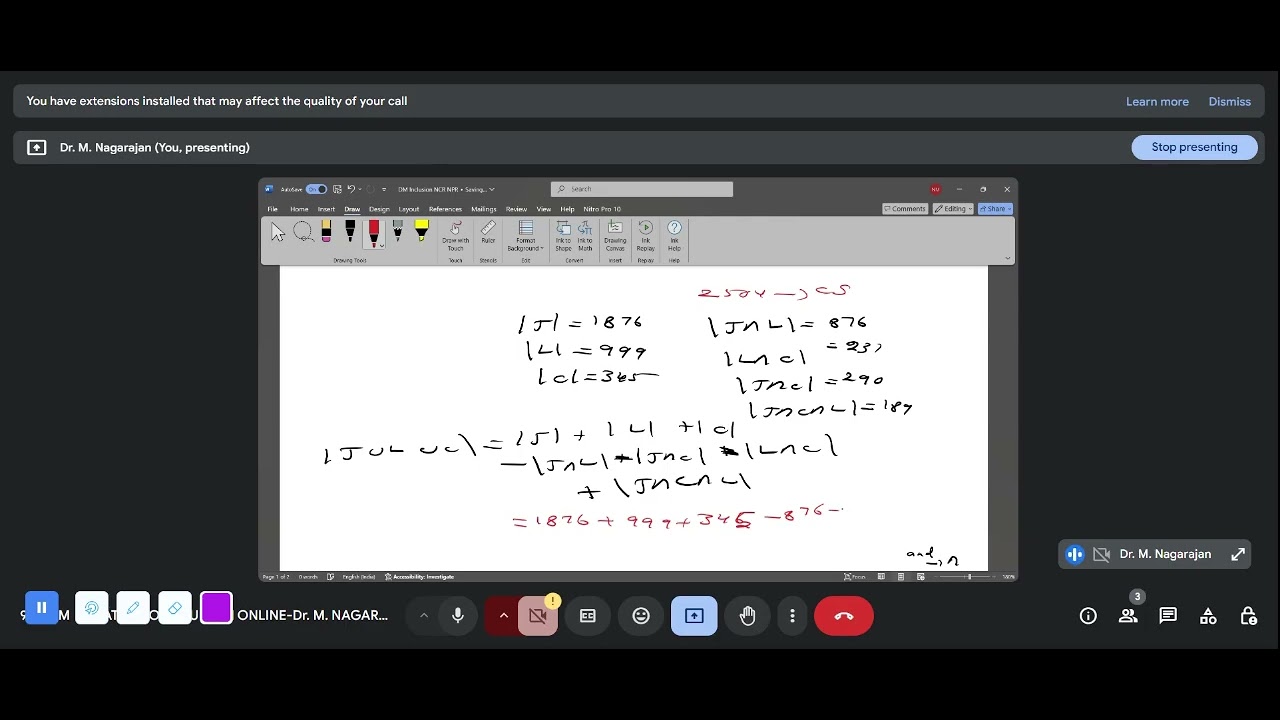 You have extensions installed that may affect the quality of your call Learn more Dismiss
Dr. M. Nagarajan (You, presenting) Stop presenting
AutoSave On DM Inclusion NCR NPR • Saving... Search NU
File Home Insert Draw Design Layout References Mailings Review View Help Nitro Pro 10 Comments Editing Share
Draw with Touch Ruler Format Background Ink to Shape Ink to Math Drawing Canvas Ink Replay Ink Help
Drawing Tools Touch Stencils Edit Convert Insert Replay Help
2504 → CS
|J| = 1876 |J∩L| = 876
|L| = 999 |L∩C| = 23
|C| = 345 |J∩C| = 290
|J∩C∩L| = 189
|J∪L∪C| = |J| + |L| + |C|
- |J∩L| - |J∩C| - |L∩C|
+ |J∩C∩L|
= 1876 + 999 + 345 - 876 -
and → ∩
Page 1 of 2 0 words English (India) Accessibility: Investigate Focus 180%
Dr. M. Nagarajan
ONLINE-Dr. M. NAGAR...
3